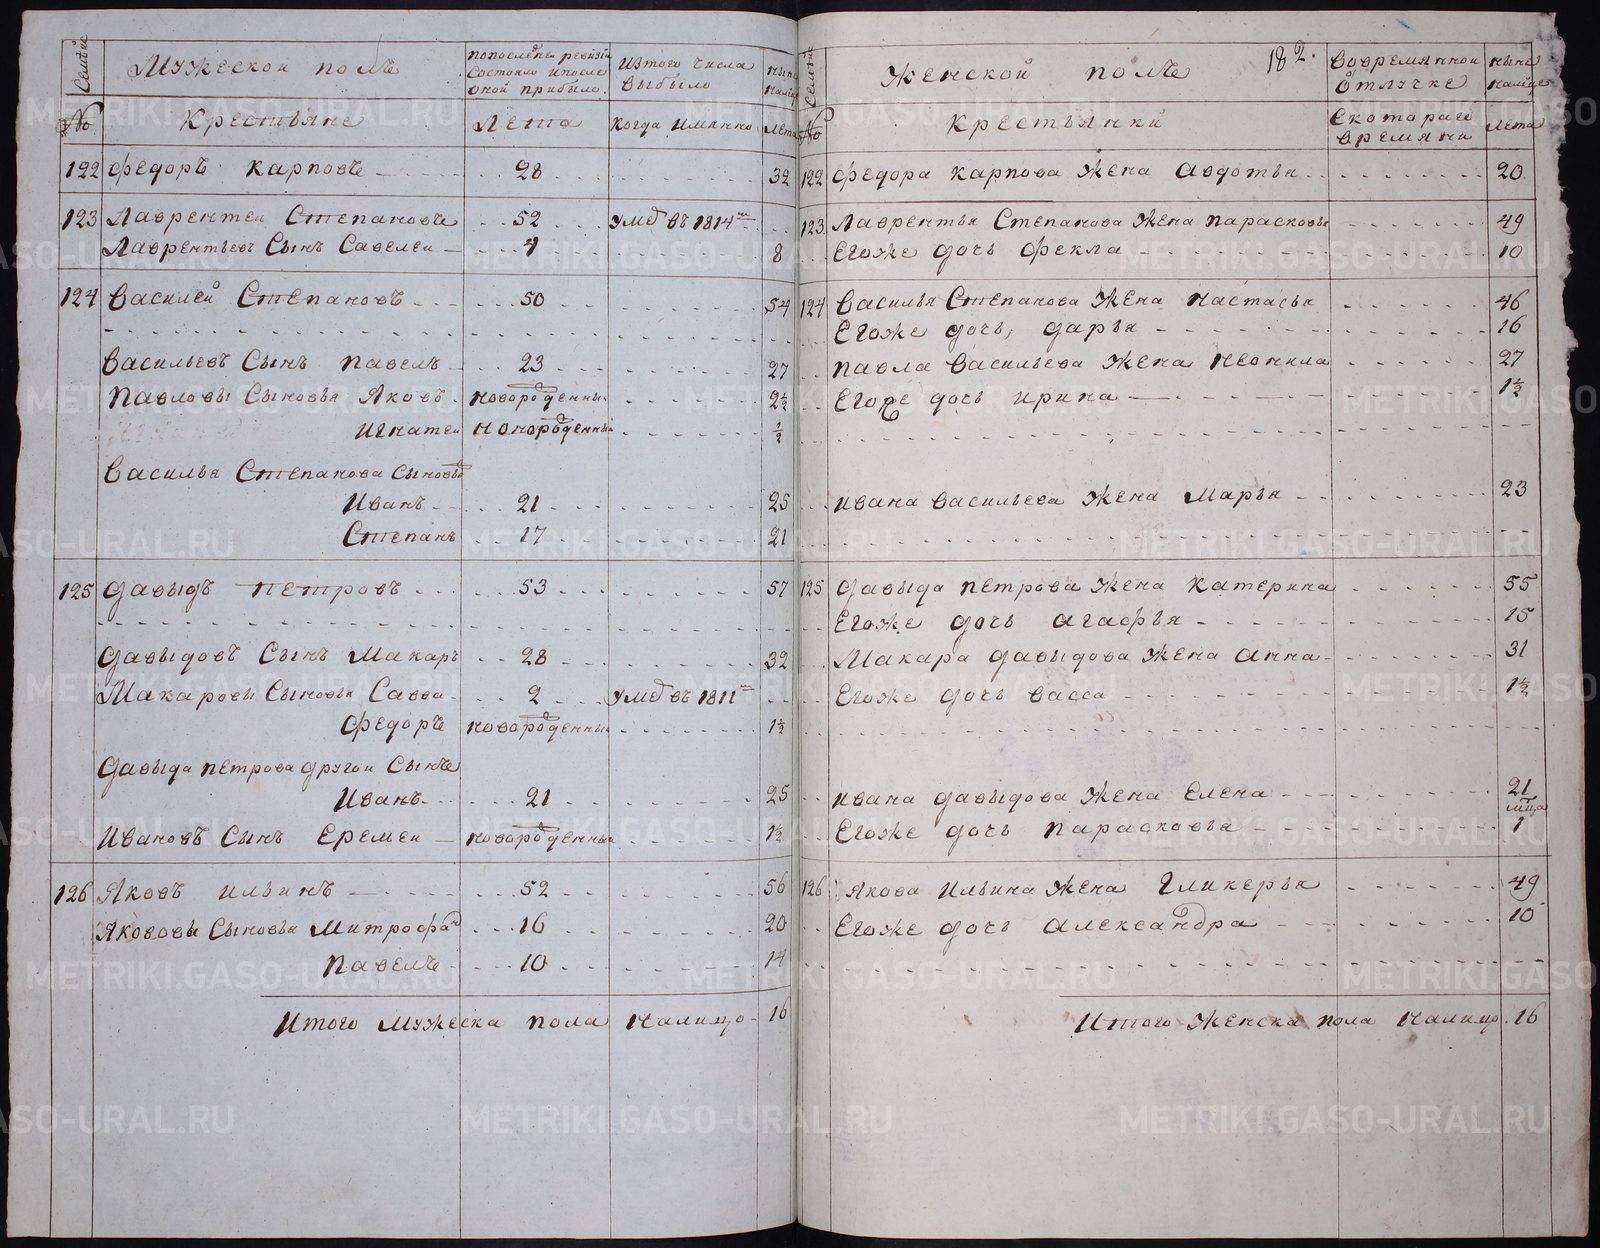 Семьи
Мужеской полъ
попоследней ревизии
Состояло ипосле
оной прибыло.
Изтого числа
выбыло
ныне
налицо
№
Крестьяне
Лета
когда имянно
лета
122 Федоръ Карповъ 28 32
123 Лаврентей Степановъ 52 Умѣ въ 1814м
Лаврентьевъ Сынъ Савелеи 4 8
124 Василей Степановъ 50 54
Васильевъ Сынъ Павелъ 23 27
Павловы Сыновья Яковъ новорожденный 2½
Игнатеи новорожденный ½
Василья Степанова Сыновья
Иванъ 21 25
Степанъ 17 21
125 Давыдъ Петровъ 53 57
Давыдовъ Сынъ Макаръ 28 32
Макаровы Сыновья Савва 2 Умѣ въ 1811м
Федоръ новорожденный 1½
Давыда Петрова другои Сынъ
Иванъ 21 25
Ивановъ Сынъ Еремеи новорожденный 1½
126 Яковъ Ильинъ 52 56
Яковovы Сыновья Митрофан 16 20
Павелъ 10 14
Итого Мужеска пола налицо 16
Семьи
Женской полъ
182.
Вовремянной
отлучке
ныне
налице
№
Крестьянки
Скотораго
времяни
лета
122 Федора Карпова Жена Авдотья 20
123 Лаврентья Степанова Жена Парасковья 49
Егоже дочь Фекла 10
124 Василья Степанова Жена Настасья 46
Егоже дочь, Дарья 16
Павла Васильева Жена Неонила 27
Егоже дочь Ирина 1½
Ивана Васильева Жена Марья 23
125 Давыда Петрова Жена Катерина 55
Егоже дочь Агафья 15
Макара Давыдова Жена Анна 31
Егоже дочь Васса 1½
Ивана Давыдова Жена Елена 21
мца
Егоже дочь Парасковья 1
126 Якова Ильина Жена Гликерья 49
Егоже дочь Александра 10
Итого Женска пола налицо 16
METRIKI.GASO-URAL.RU